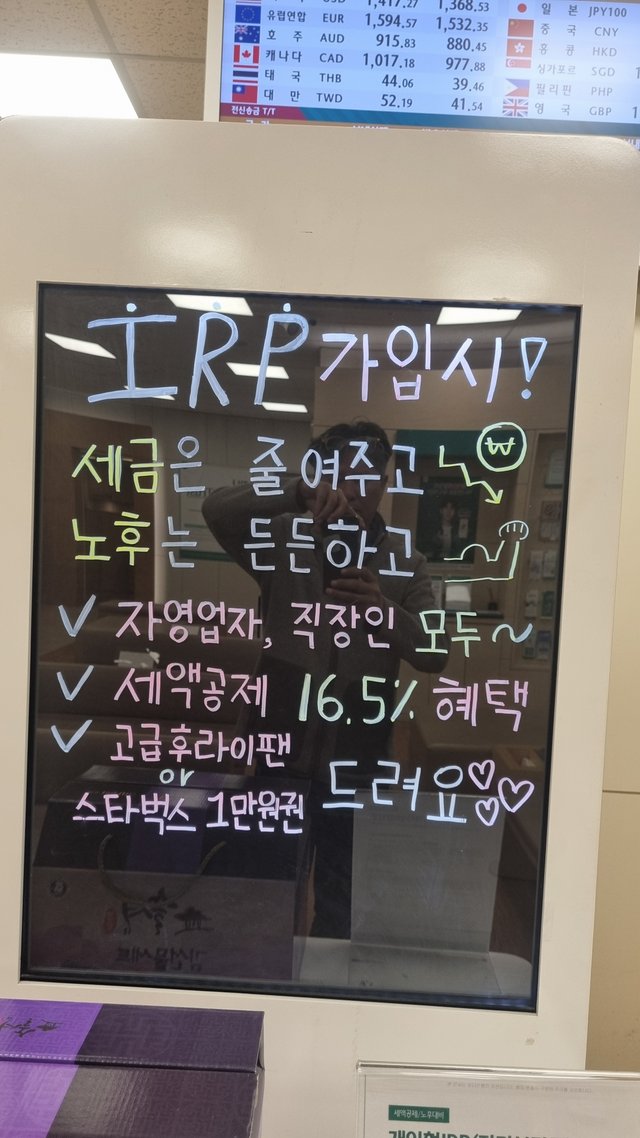 USD 1,417.27 1,368.53
유럽연합 EUR 1,594.57 1,532.35
호 주 AUD 915.83 880.45
캐나다 CAD 1,017.18 977.88
태 국 THB 44.06 39.46
대 만 TWD 52.19 41.54
일 본 JPY100
중 국 CNY
홍 콩 HKD
싱가포르 SGD
필리핀 PHP
영 국 GBP
전신송금 T/T
IRP 가입시!
세금은 줄여주고 ₩
노후는 든든하고
✓ 자영업자, 직장인 모두~
✓ 세액공제 16.5% 혜택
✓ 고급후라이팬
or
스타벅스 1만원권 드려요♡♡♡
세액공제/노후대비